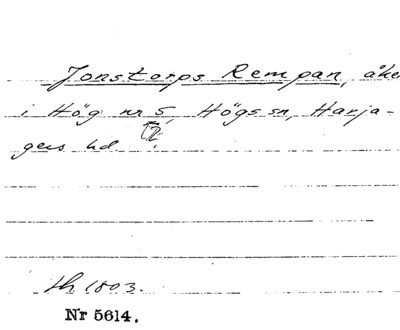 Jonstorps Rempan, åke
i Hög nr 5, Högs sn, Harja-
gers hd.
th 1803.
Nr 5614.